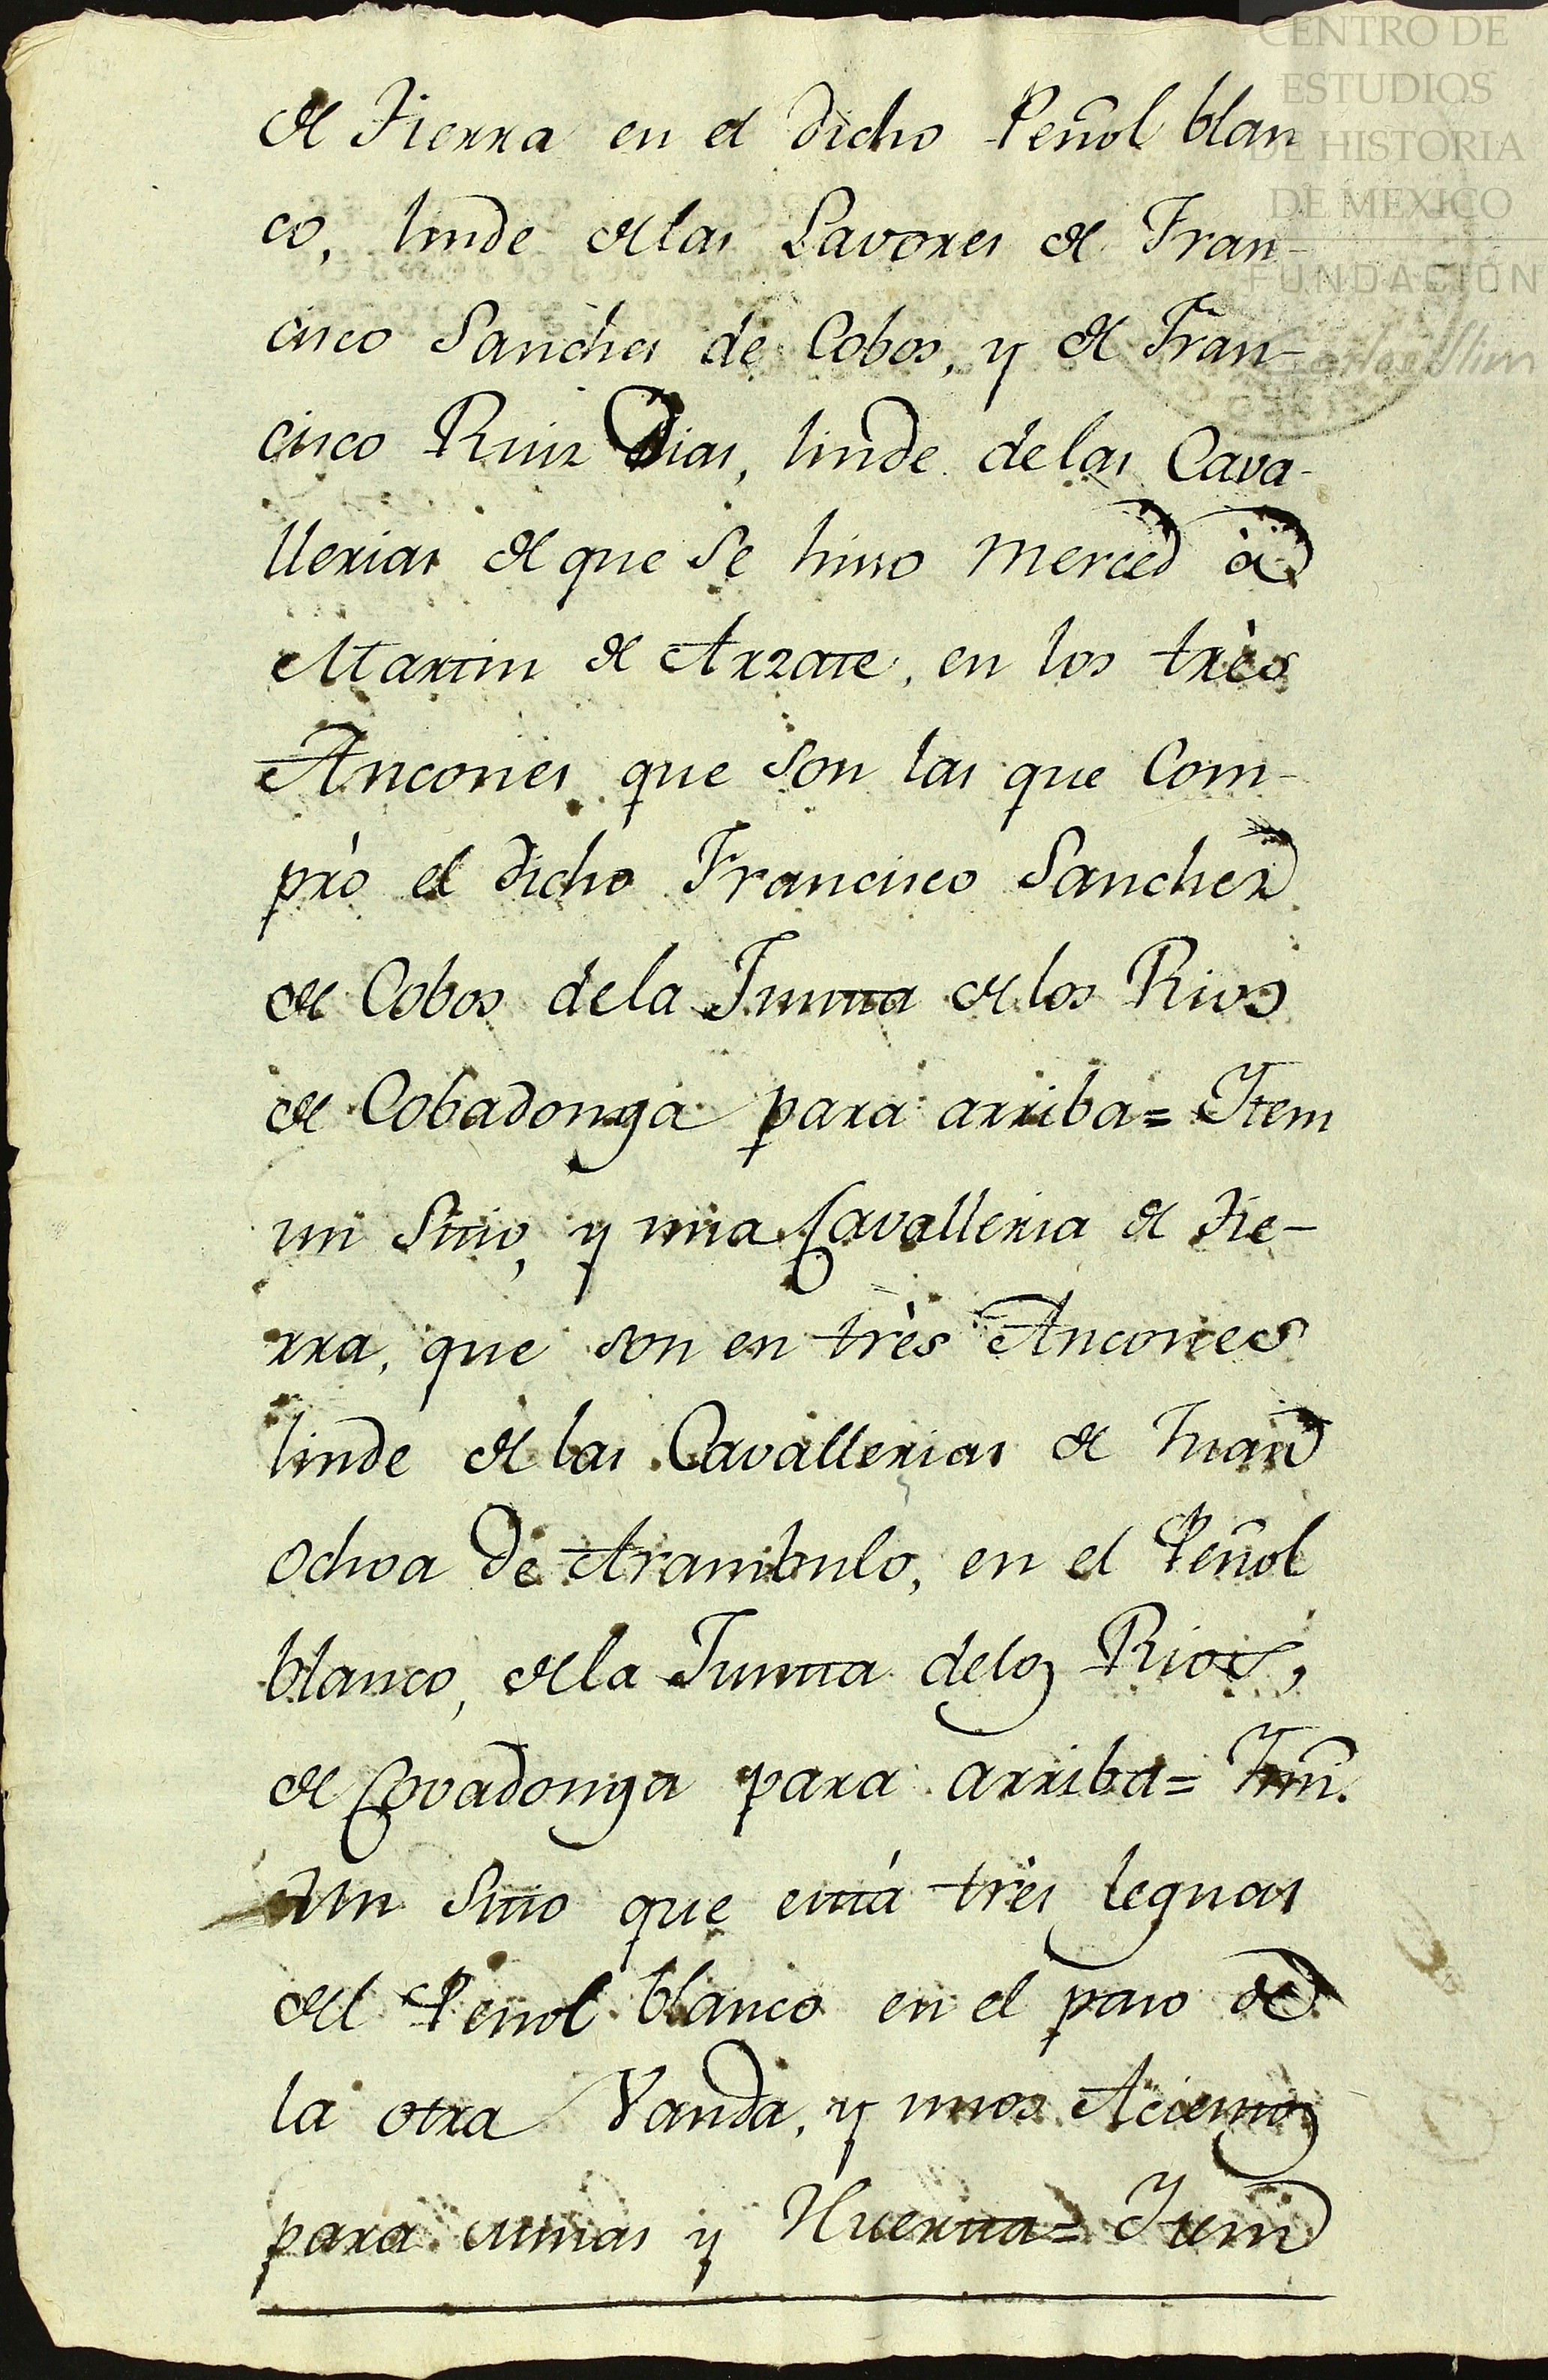 CENTRO DE
ESTUDIOS
DE HISTORIA
DE MEXICO
FUNDACIÓN
Carlos Slim
de Tierra en el dicho Peñol blan
co, linde de las Lavores de Fran-
cisco Sanches de Cobos, y de Fran-
cisco Ruiz Dias, linde de las Cava-
llerias de que se hisso merced à
Martin de Arzate, en los très
Ancones que son las que Com-
prò el dicho Francisco Sanchez
de Cobos de la Junta de los Rios
de Cobadonga para arriba= Item
un Sitio, y una Cavalleria de Tie-
rra, que son en très Ancones
linde de las Cavallerias de Juan
Ochoa de Arambulo, en el Peñol
blanco, de la Junta de los Rios,
de Covadonga para arriba= Ittm̃.
Un Sitio que està tres leguas
del Peñol blanco en el paso de
la otra Vanda, y unos Acientos
para minas y Huerta= Item